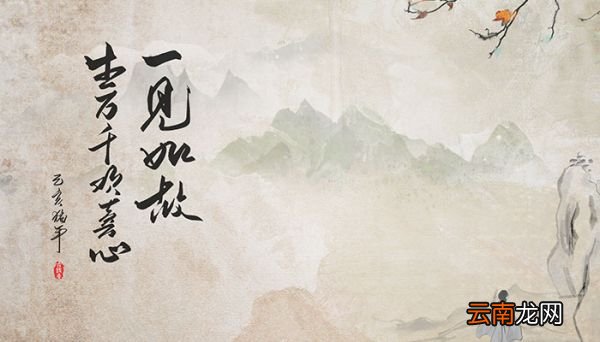 一见如故
生万千欢喜心
己亥猪年
云南龙网